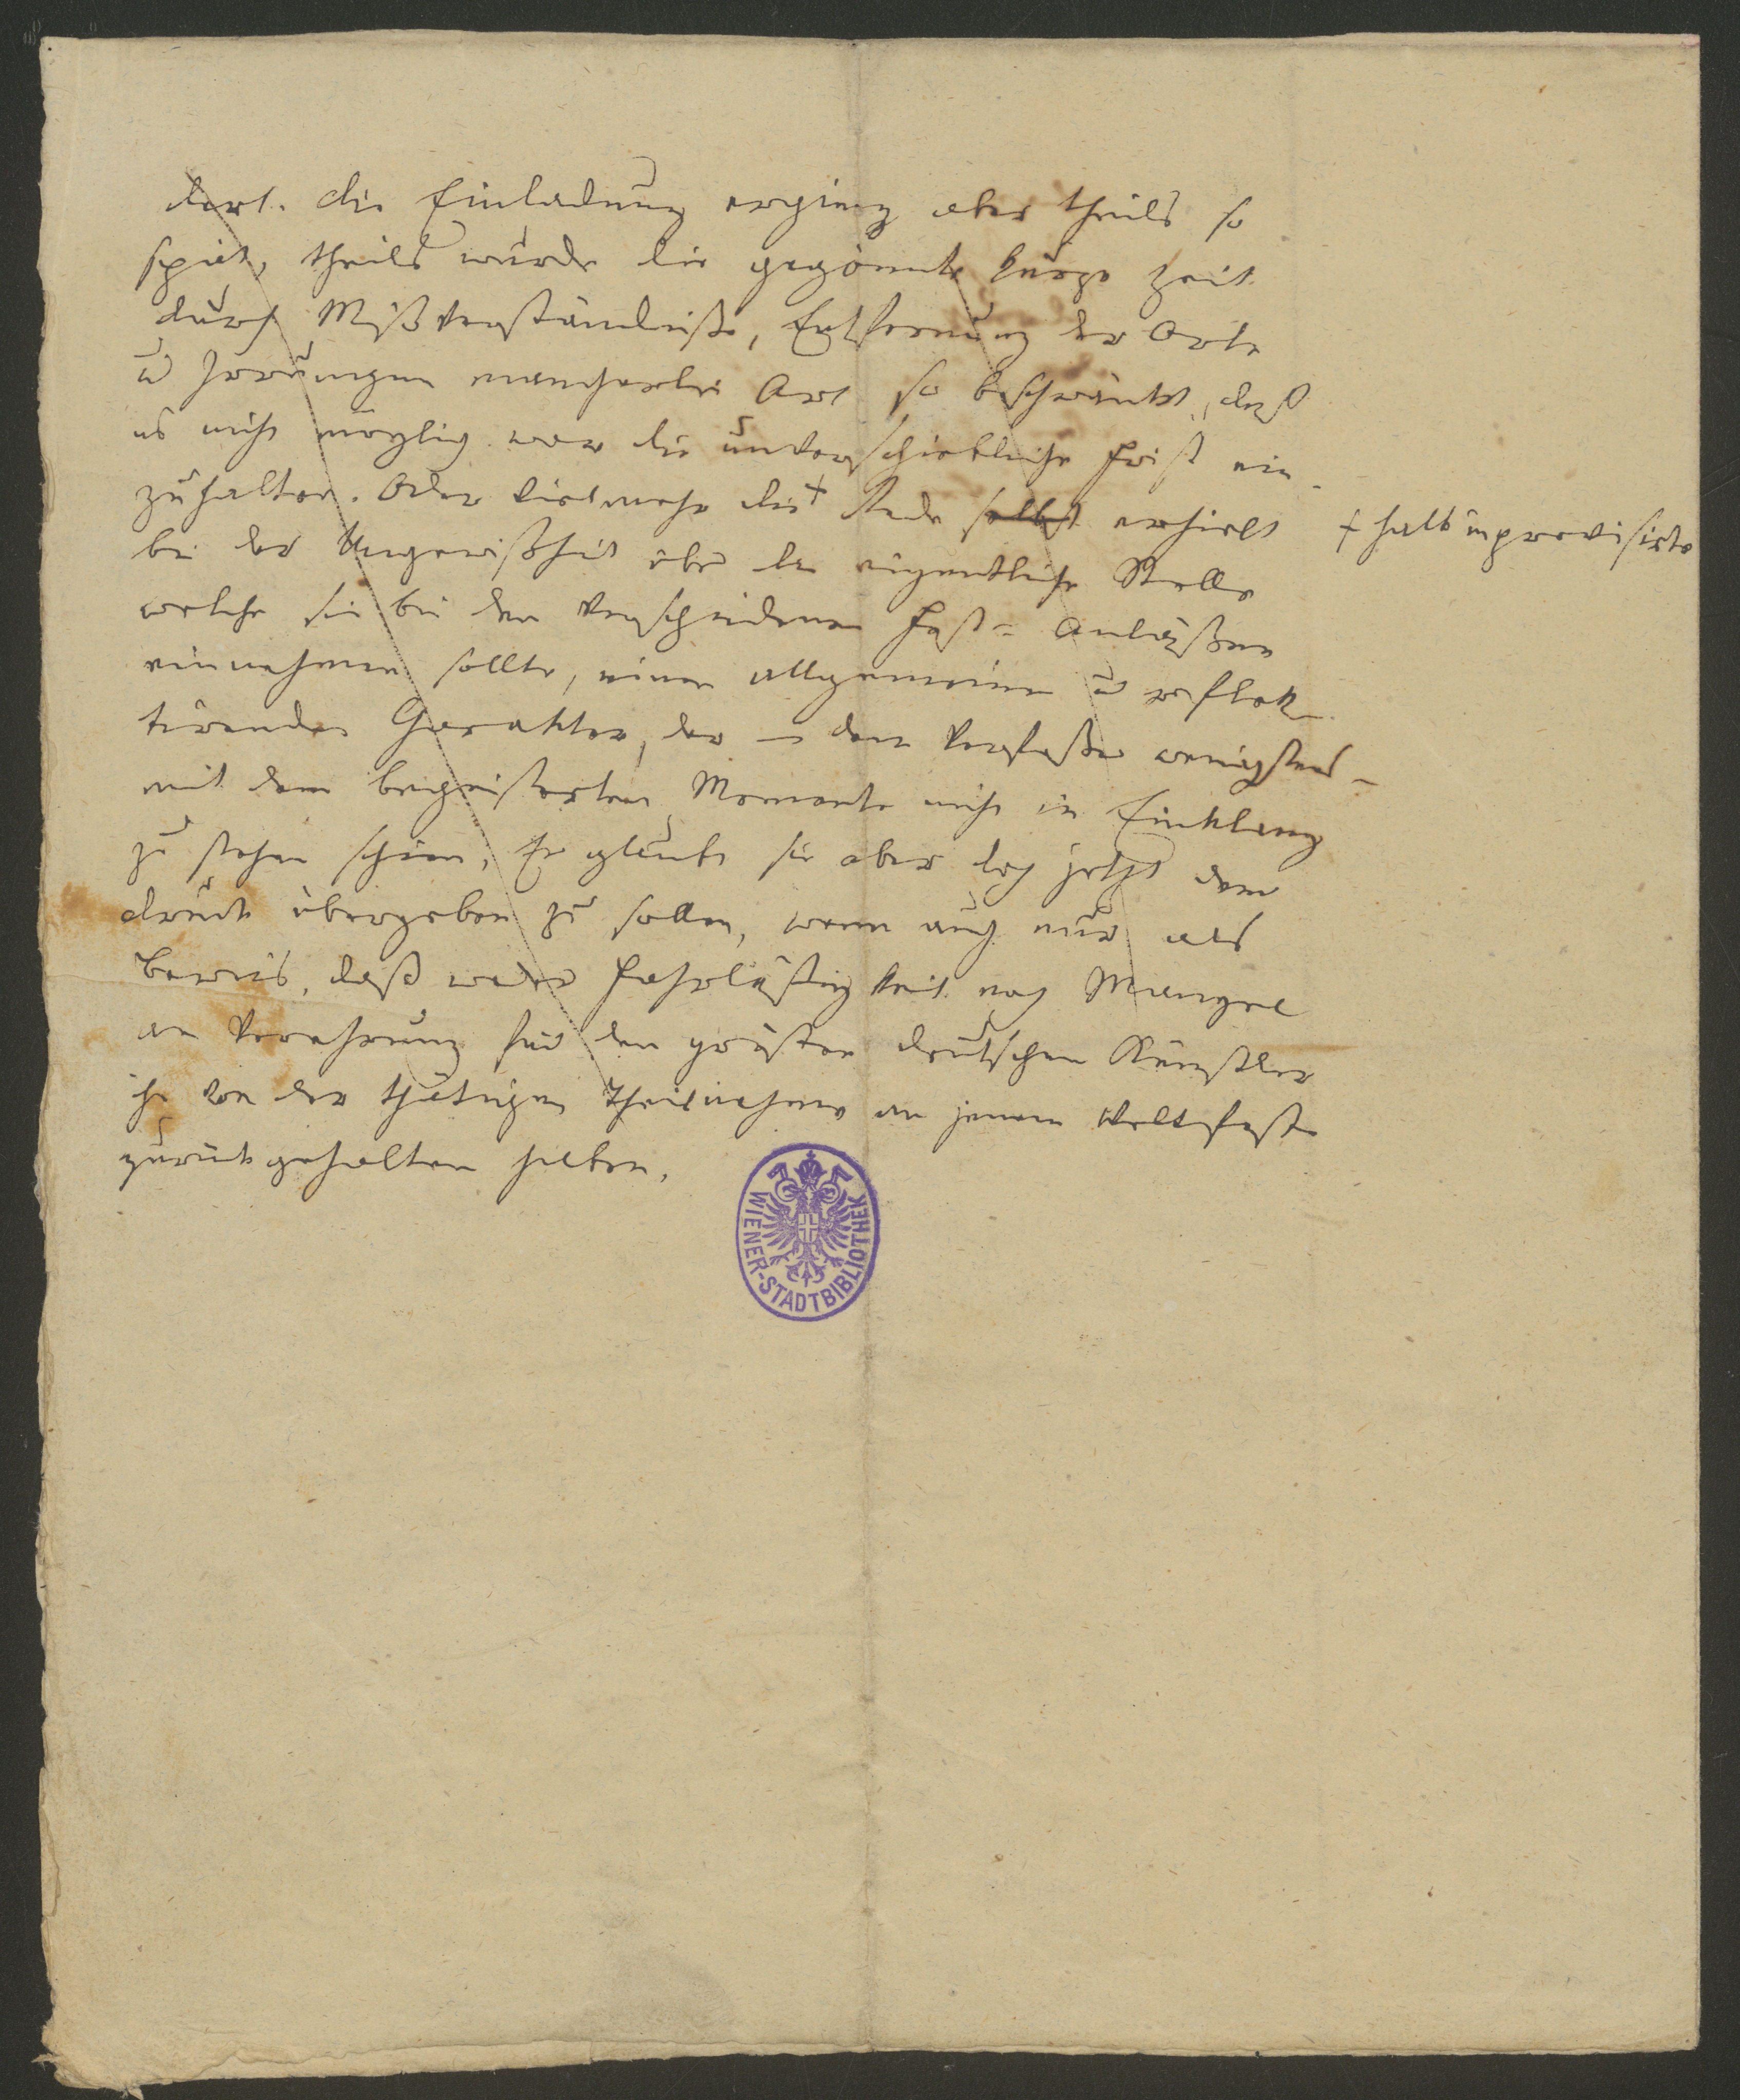 dert. Die Einladung erging aber theils so
spät, theils wurde die gegönnte kurze Zeit
durch Mißverständniße, Entfernung der Orte
u Irrungen mancherlei Art so beschränkt, daß
es nicht möglich war die unverschiebliche Frist ein-
zuhalten. Oder vielmehr die + Rede selbst erhielt
+ halb inprovisirte
bei der Ungewißheit über die eigentliche Stelle
welche sie bei den verschiedenen Fest-Anläßen
einnehmen sollte, einen allgemeinen u reflek-
tirenden Charakter, der – dem Verfaßer wenigstens –
mit dem begeisterten Momente nicht in Einklang
zu stehen schien. Er glaubt sie aber doch jetzt dem
Druck übergeben zu sollen, wenn auch nur als
Beweis, daß weder Fahrläßigkeit noch Mangel
an Verehrung für den größten deutschen Künstler
ihn von der thätigen Theilnahme an jenem Weltfeste
zurückgehalten haben.
WIENER-STADTBIBLIOTHEK